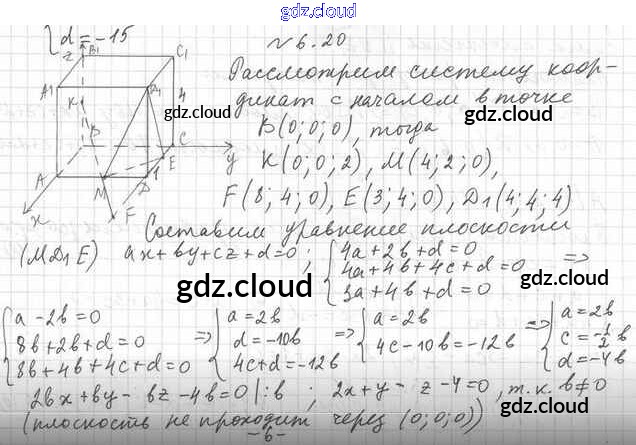 gdz.cloud
{d = -15
№ 6.20
z B₁ C₁
Рассмотрим систему коор-
A₁ D₁ 4
gdz.cloud
динат с началом в точке
K
gdz.cloud
B(0; 0; 0), тогда
B C y
K(0; 0; 2), M(4; 2; 0),
E
A M D 1
F(8; 4; 0), E(3; 4; 0), D₁(4; 4; 4)
gdz.cloud
x F
Составим уравнение плоскости
gdz.cloud
(MD₁E) ax+by+cz+d=0; {4a+2b+d=0
4a+4b+4c+d=0 =>
3a+4b+d=0
gdz.cloud gdz.cloud
{a-2b=0 => {a=2b => {a=2b => {a=2b
8b+2b+d=0 d=-10b 4c-10b=-12b c=-1/2 b
8b+4b+4c+d=0 4c+d=-12b d=-4b
2bx+by-bz-4b=0 |:b ; 2x+y-z-4=0, т.к. b≠0
gdz.cloud gdz.cloud
(плоскость не проходит через (0; 0; 0))
-6-